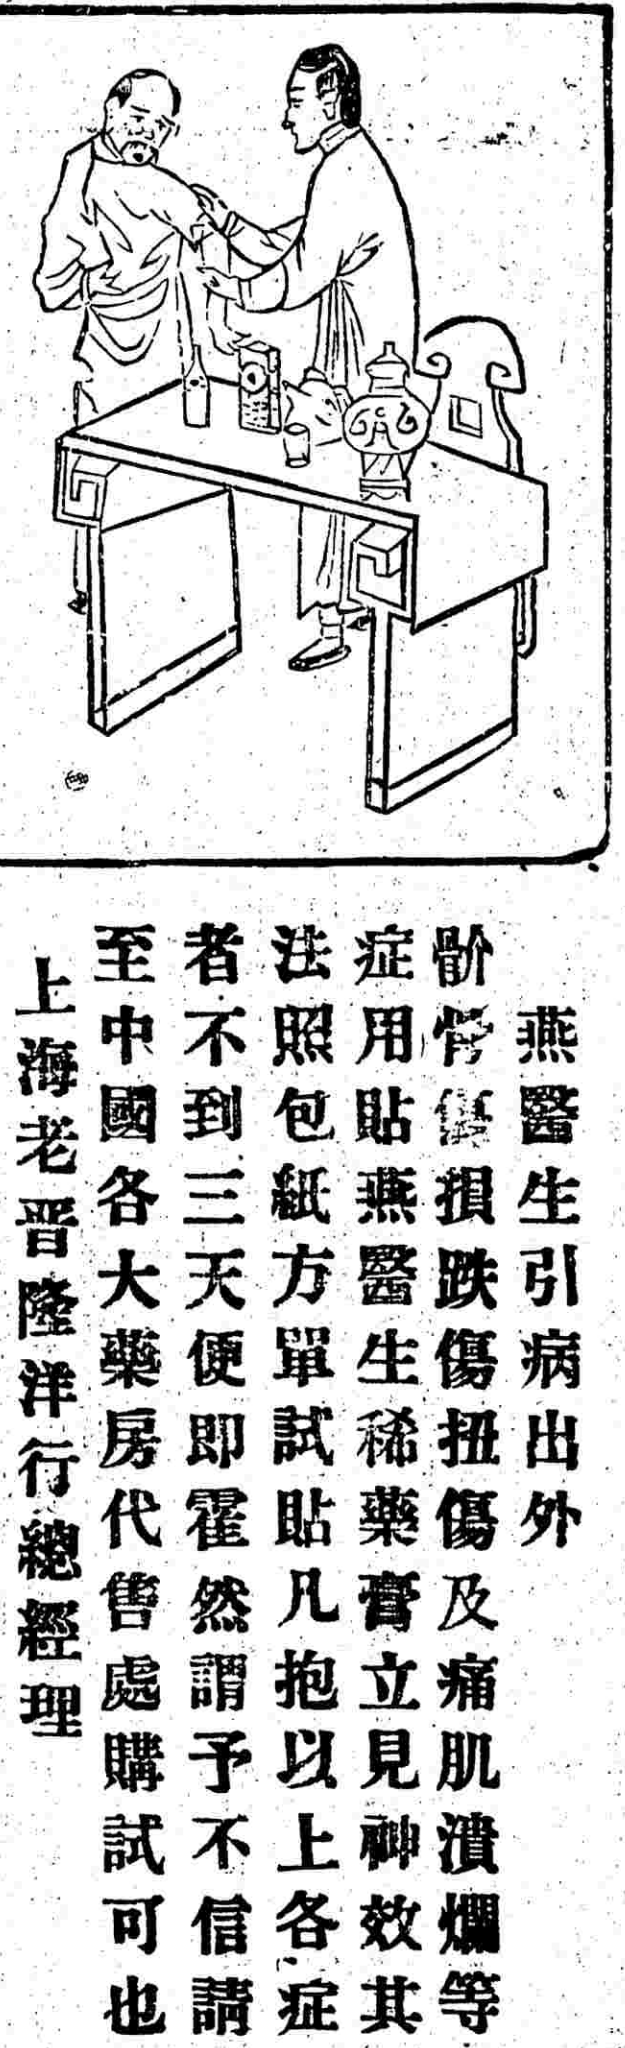 燕醫生引病出外
骱骨傷損跌傷扭傷及痛肌潰爛等
症用貼燕醫生稀藥膏立見神效其
法照包紙方單試貼凡抱以上各症
者不到三天便即霍然謂予不信請
至中國各大藥房代售處購試可也
上海老晋隆洋行總經理